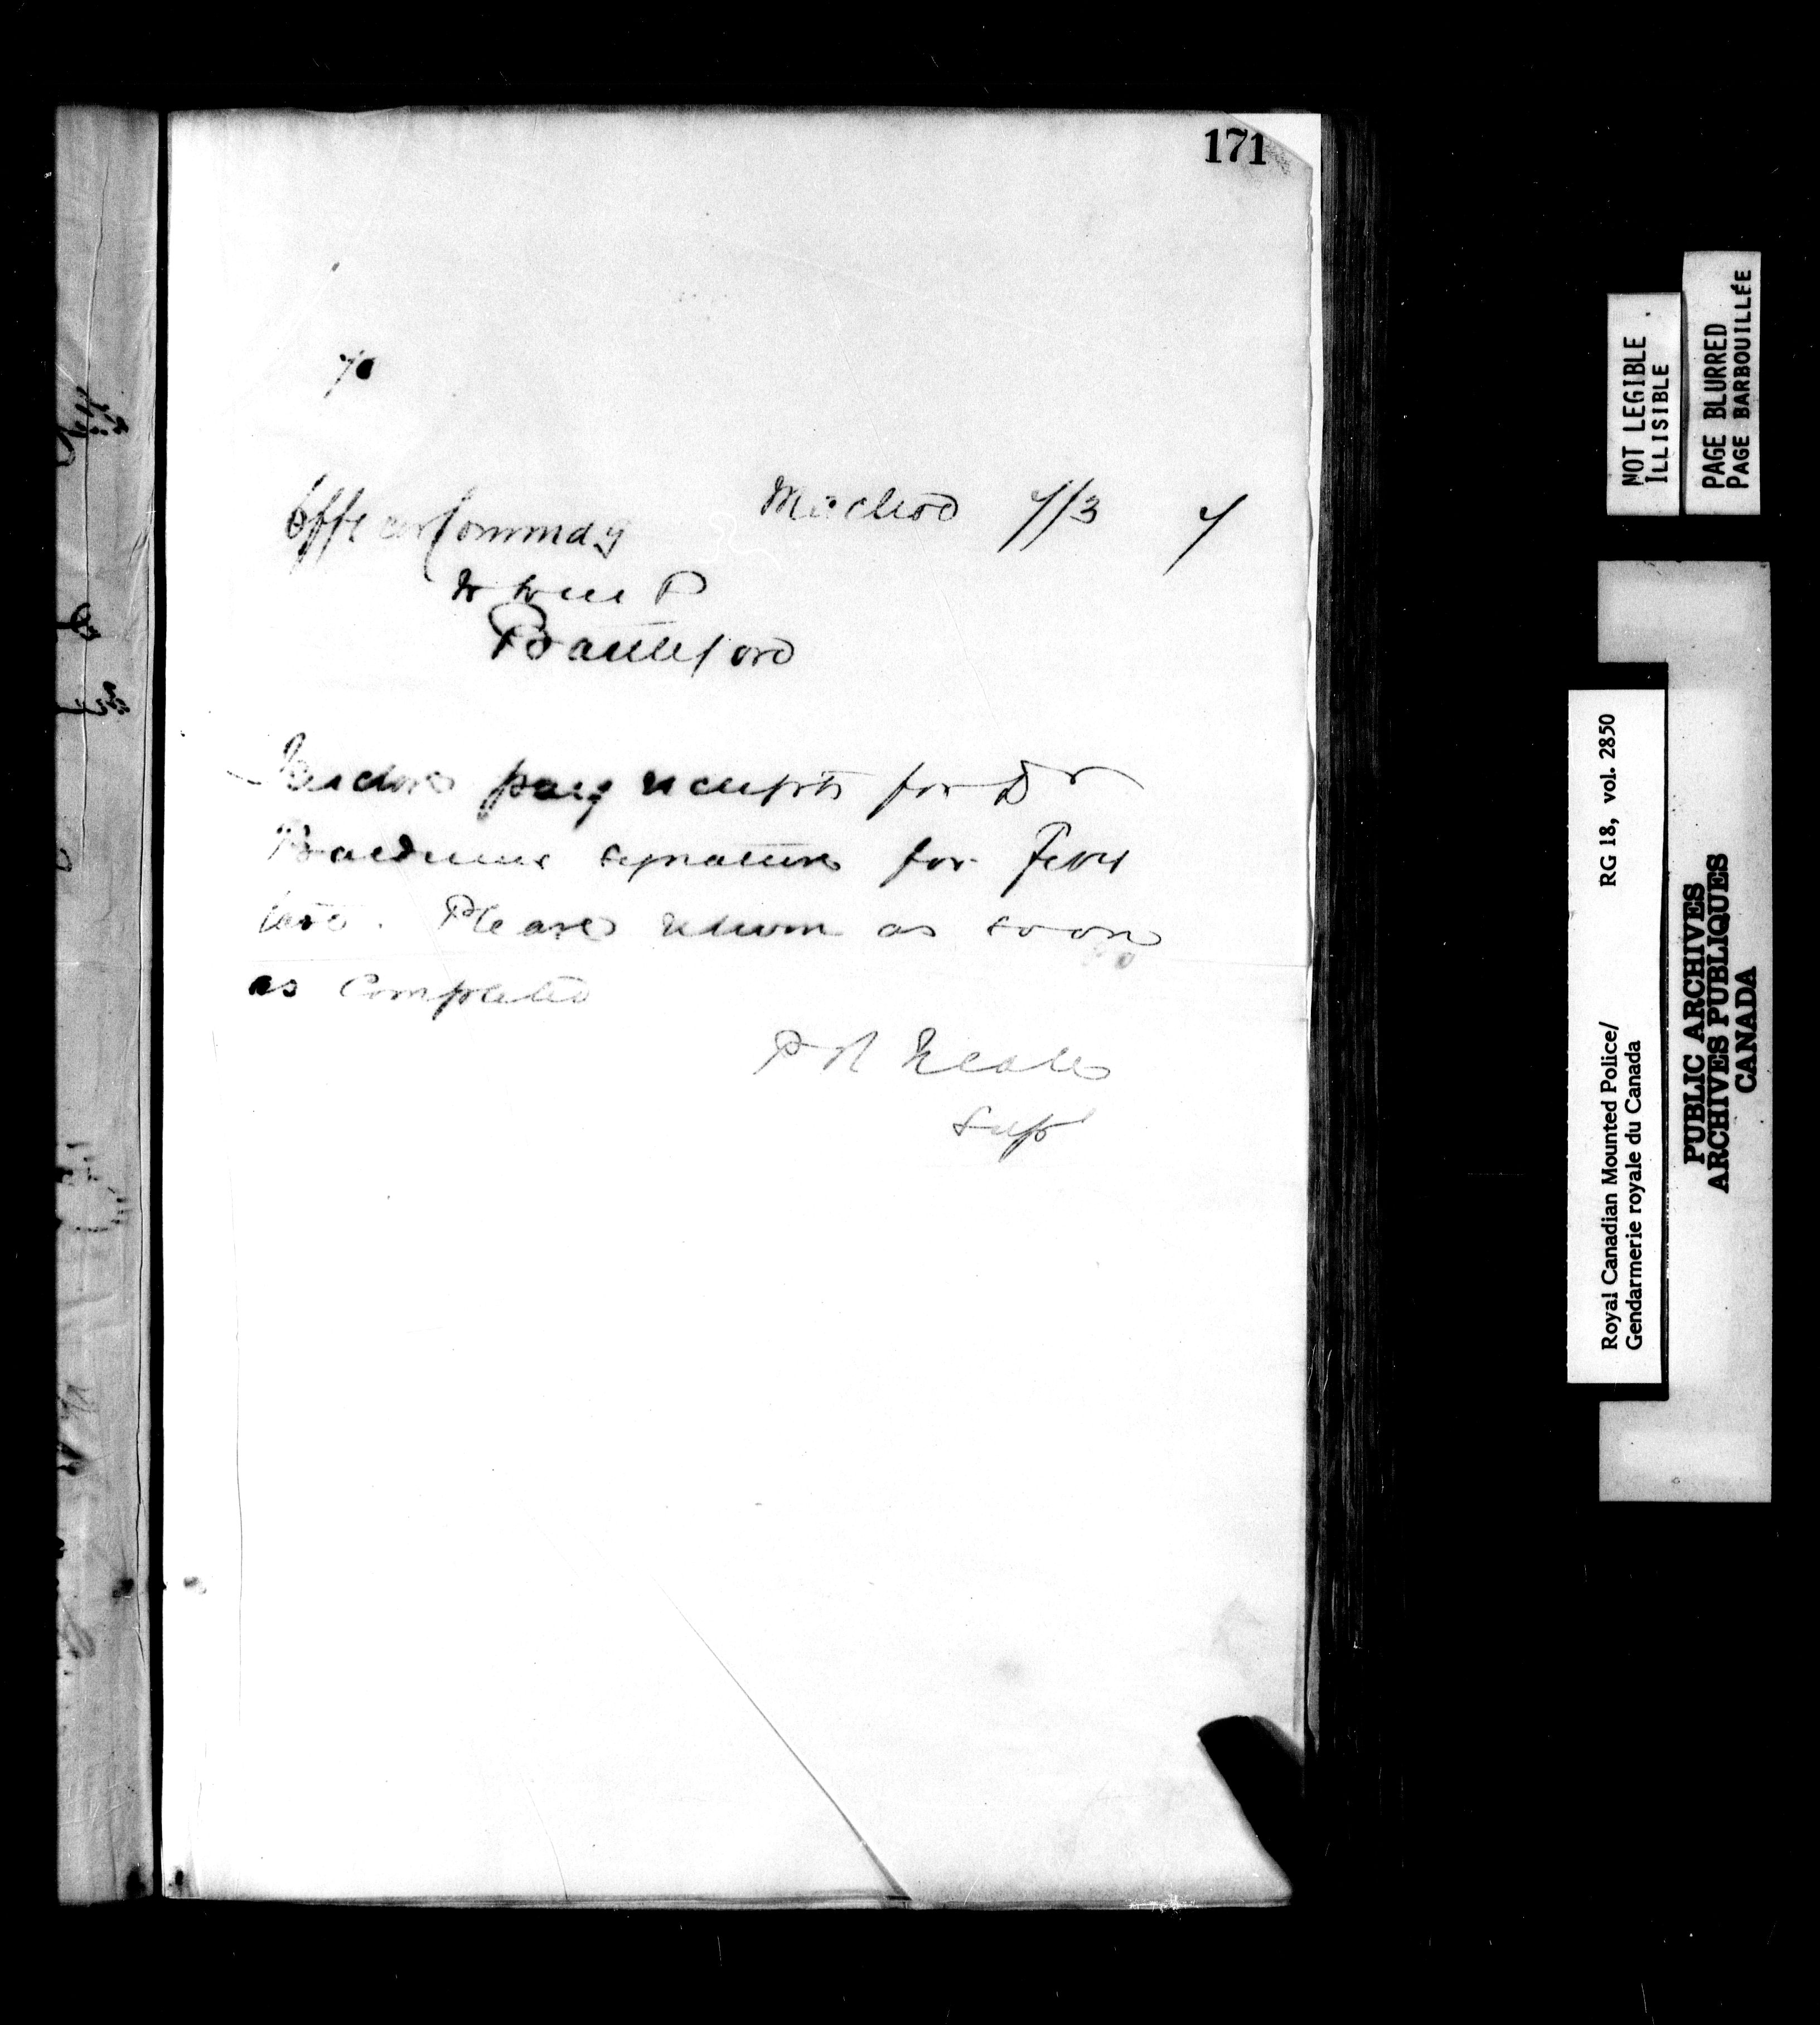 171
To
McLeod 7/3 7
Officer Commdg
N W M P
Battleford
Enclose pay receipts for Dr
signature for Feby
last. Please return as soon
as Completed
P R Neale
Supt
NOT LEGIBLE
ILLISIBLE
PAGE BLURRED
PAGE BARBOUILLÉE
RG 18, vol. 2850
Royal Canadian Mounted Police/
Gendarmerie royale du Canada
PUBLIC ARCHIVES
ARCHIVES PUBLIQUES
CANADA